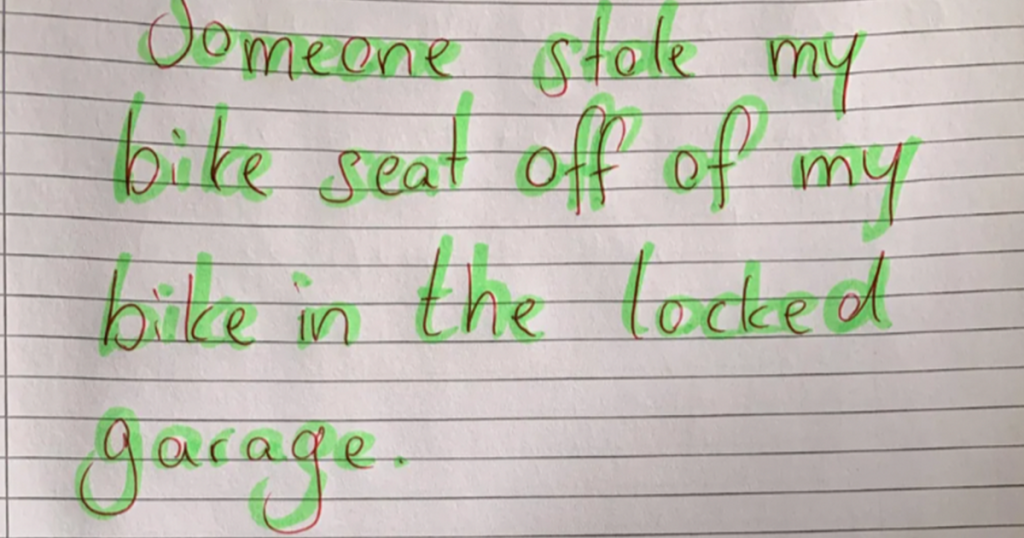 Someone stole my
bike seat off of my
bike in the locked
garage.